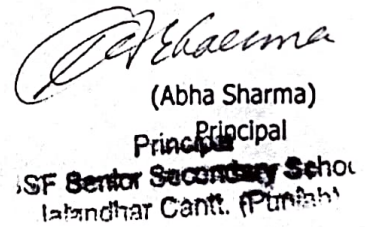 (Abha Sharma)
Principal
Principal
SF Senior Secondary Schoo
Jalandhar Cantt. (Punjab)